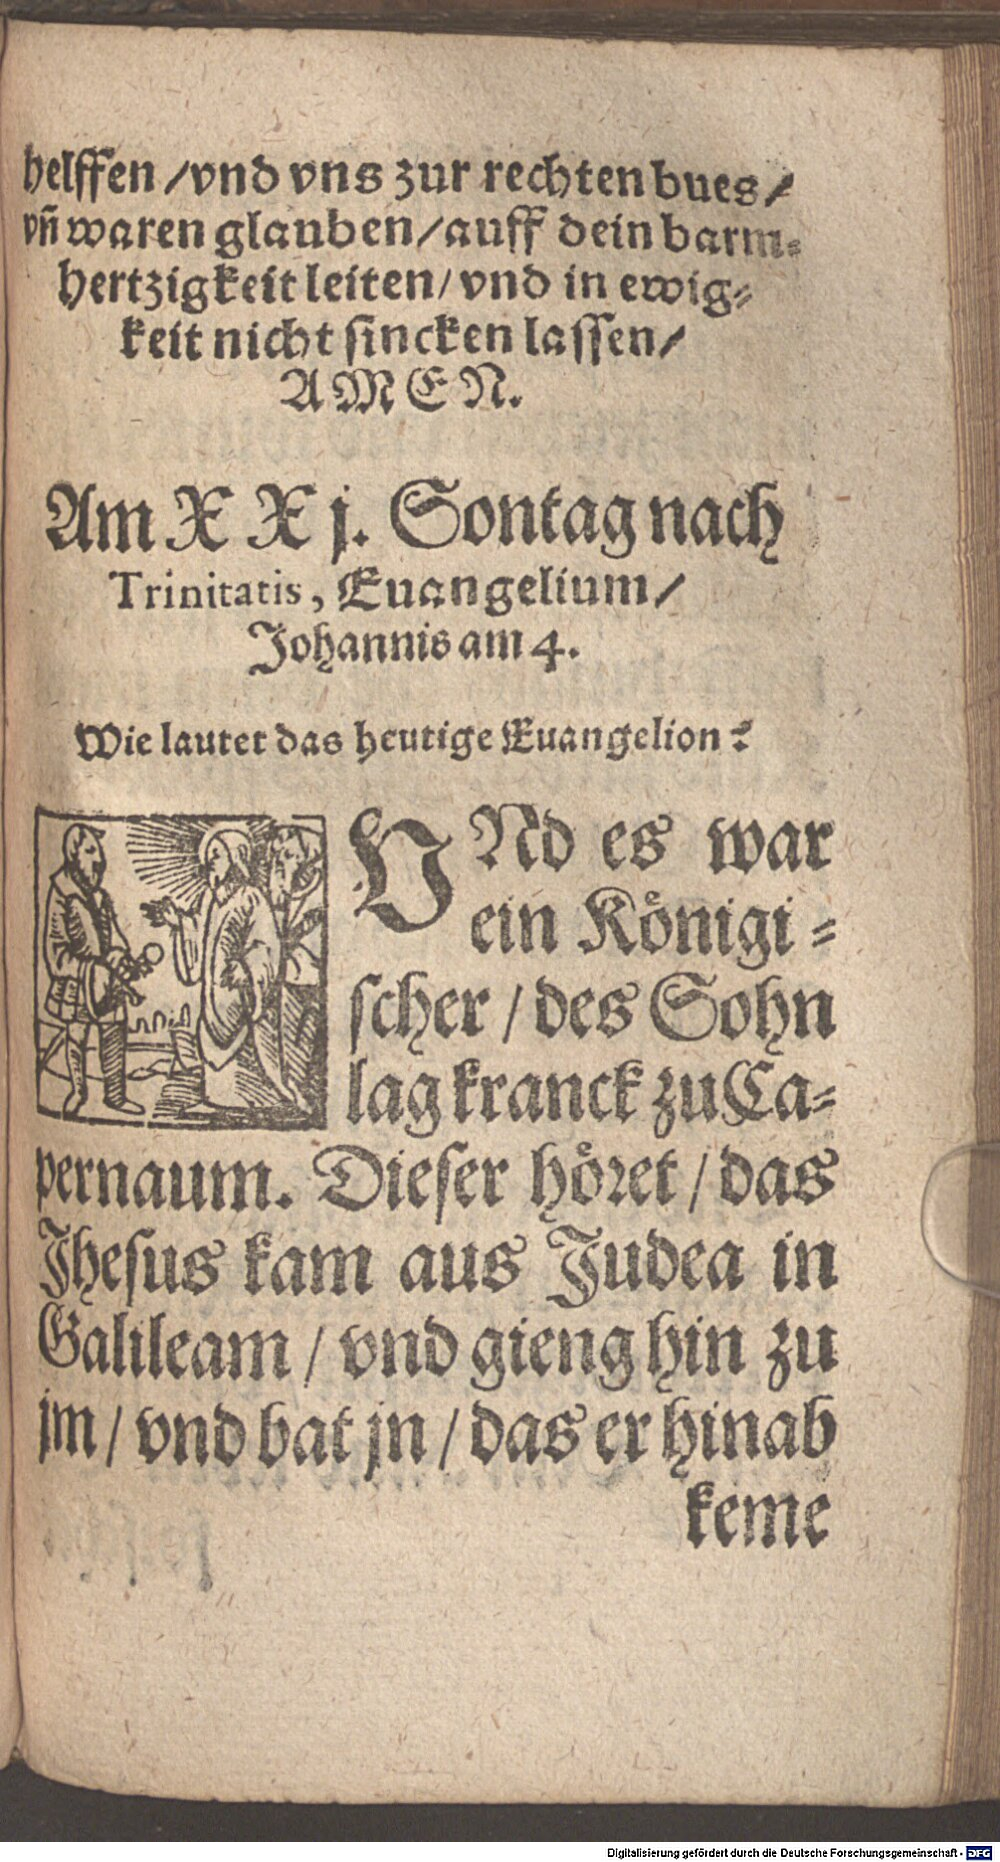 helffen /vnd vns zur rechten bues/
vñ waren glauben/auff dein barm⸗
hertzigkeit leiten/ vnd in ewig⸗
keit nicht sincken lassen/
AMEN.
Am XXj. Sontag nach
Trinitatis, Euangelium/
Johannis am 4.
Wie lautet das heutige Euangelion?
VNd es war
ein Königi⸗
scher / des Sohn
lag kranck zu Ca⸗
pernaum. Dieser höret / das
Jhesus kam aus Judea in
Galileam / vnd gieng hin zu
jm / vnd bat jn / das er hinab
keme
Digitalisierung gefördert durch die Deutsche Forschungsgemeinschaft - DFG